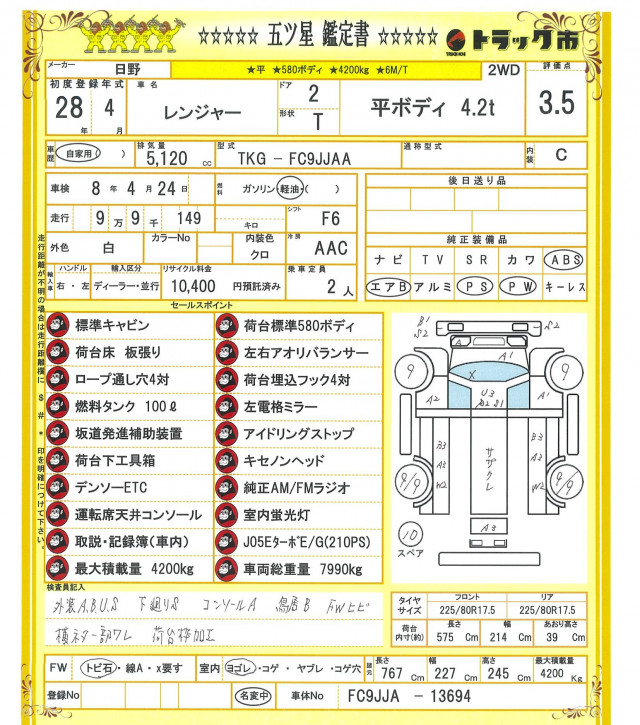 ☆☆☆☆☆ 五ツ星 鑑定書 ☆☆☆☆☆ トラック市
TRUCK-ICHI
メーカー 日野 ★平 ★580ボディ ★4200kg ★6M/T 2WD 評価点
初度登録年式 28年 4月 車名 レンジャー ドア 2 形状 T 平ボディ 4.2t 3.5
車歴 自家用( ) 排気量 5,120 cc 型式 TKG - FC9JJAA 通称型式 内装 C
車検 8年 4月 24日 燃料 ガソリン・軽油・( ) 後日送り品
走行 9万 9千 149 キロ シフト F6
外色 白 カラーNo 内装色 クロ 冷房 AAC 純正装備品
ナビ TV SR カワ ABS
ハンドル 右・左 輸入車 輸入区分 ディーラー・並行 リサイクル料金 10,400 円預託済み 乗車定員 2人
エアB アルミ PS PW キーレス
走行距離が不明の場合は走行距離欄に$#*印を明確につけて下さい。
セールスポイント
標準キャビン 荷台標準580ボディ
荷台床 板張り 左右アオリバランサー
ロープ通し穴4対 荷台埋込フック4対
燃料タンク 100ℓ 左電格ミラー
坂道発進補助装置 アイドリングストップ
荷台下工具箱 キセノンヘッド
デンソーETC 純正AM/FMラジオ
運転席天井コンソール 室内蛍光灯
取説・記録簿(車内) J05EターボE/G(210PS)
最大積載量 4200kg 車両総重量 7990kg
B1
S2 S2
A A1
9 X 9
A2 U3 A1
B2 S1
B3 サ B3
A2 ザ A2
9/9 W2 ク W2 9/9
レ
A3
10
スペア
検査員記入
外装A.B.U.S 下廻りS コンソールA 鳥居B FWヒビ
横ネター部ワレ 荷台枠加工
タイヤサイズ フロント 225/80R17.5 リア 225/80R17.5
荷台内寸(約) 長さ 575 Cm 幅 214 Cm あおり高さ 39 Cm
FW トビ石・線A・x要す 室内 ヨゴレ・コゲ・ヤブレ・コゲ穴 諸元 長さ 767 Cm 幅 227 Cm 高さ 245 Cm 最大積載量 4200 Kg
登録No 名変中 車体No FC9JJA - 13694